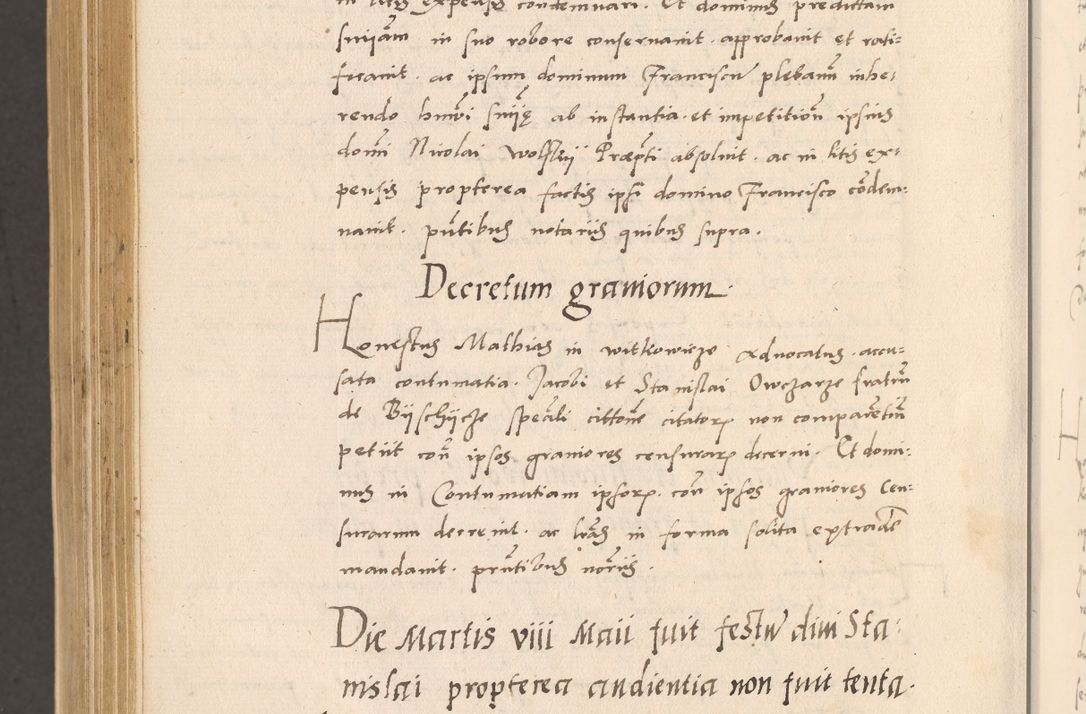 in litis expensis condemnari. Et dominus predictam
sn̄iam in suo robore conservavit. approbavit et rati-
ficavit. ac ipsum dominum Franciscū plebanū inhe-
rendo hmōi sn̄ię ab instantia et impetitiōn ipsius
domī Nicolai Wolskij Præpti absolvit. ac in litis ex-
pensis propterea factis ipsi domino Francisco cōdem-
navit. pn̄tibus notariis quibus supra.
Decretum graviorum
Honestus Mathias in witkowicze advocatus. accu-
sata contumatia. Jacobi et Stanislai Owczarze fratrū
de Bijschijcze speāli cittōne citatorꝝ non comparētiū
petiit con̄ ipsos graviores censurarꝝ decerni. Et domi-
nus in Contumatiam ipsorꝝ. con̄ ipsos graviores cen-
surarum decrevit. ac lrās in forma solita extradē
mandavit. prn̄tibus nōriis.
Die Martis viii Maii fuit festū divi Sta-
nislai propterea audientia non fuit tenta.